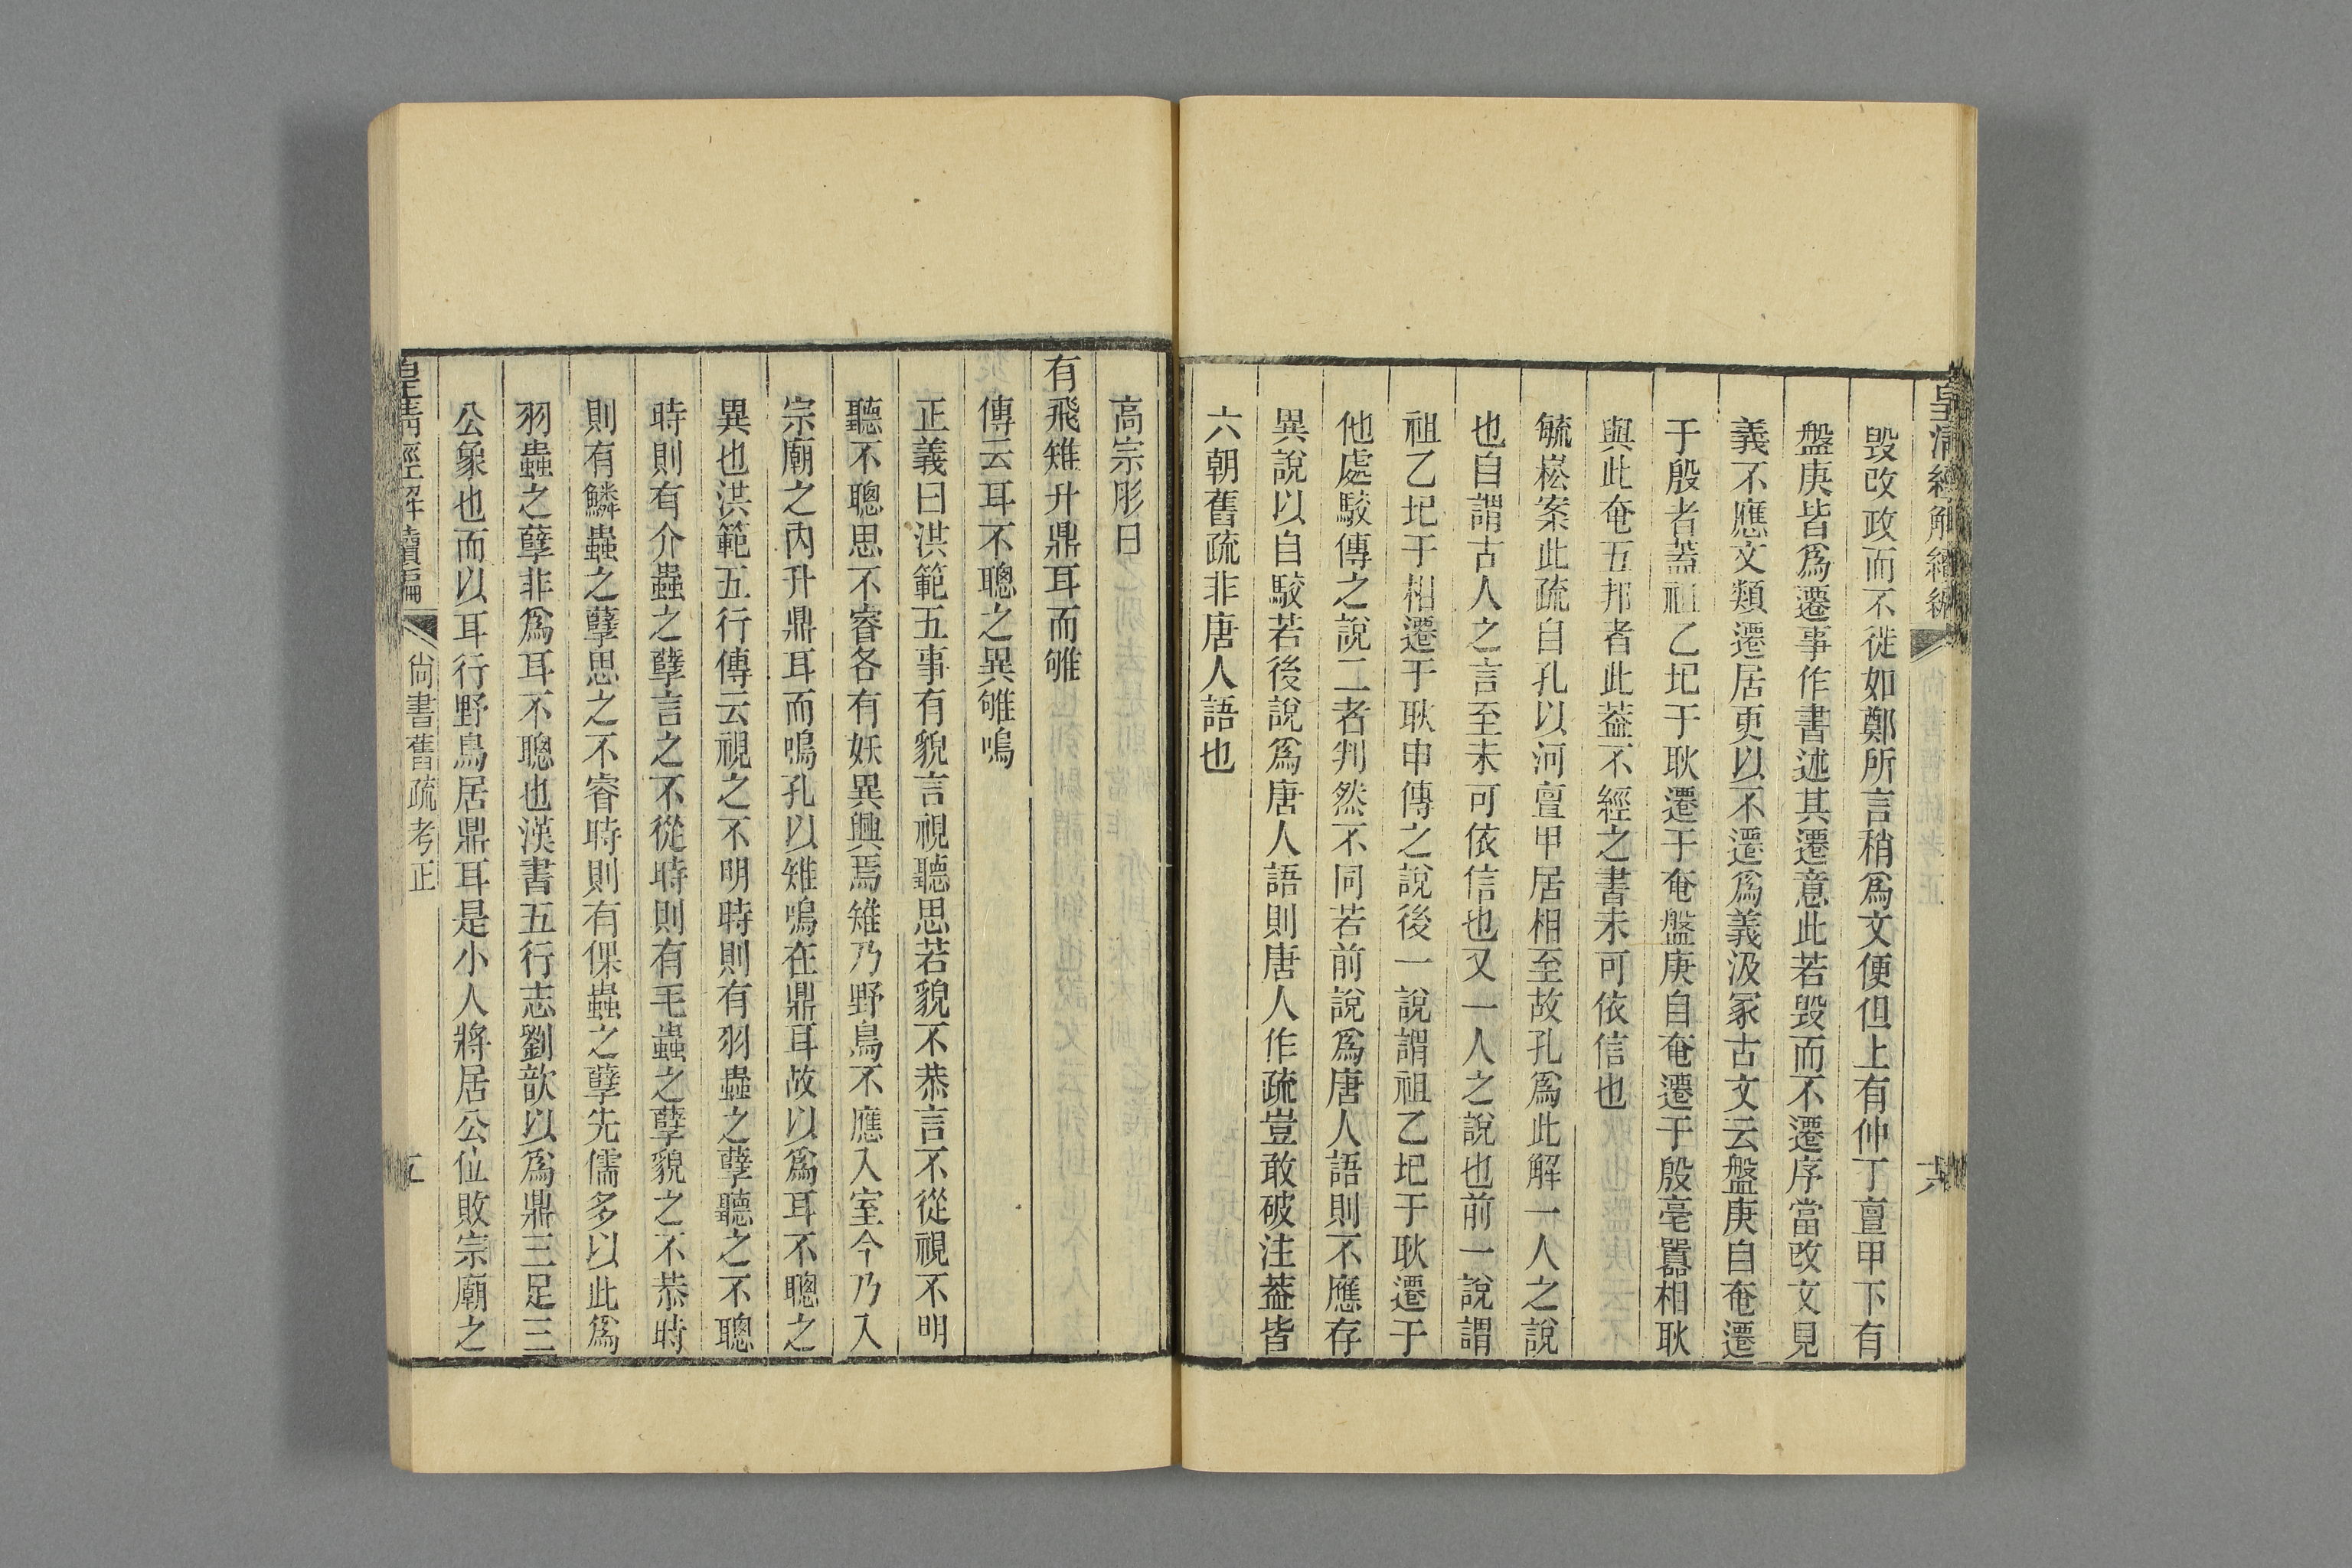 皇清經解續編
六
毀改政而不徙如鄭所言稍爲文便但上有仲丁亶甲下有
盤庚皆爲遷事作書述其遷意此若毀而不遷序當改文見
義不應文類遷居更以不遷爲義汲冢古文云盤庚自奄遷
于殷者蓋祖乙圯于耿遷于奄盤庚自奄遷于殷亳囂相耿
與此奄五邦者此葢不經之書未可依信也
毓崧案此疏自孔以河亶甲居相至故孔爲此解一人之說
也自謂古人之言至未可依信也又一人之說也前一說謂
祖乙圯于相遷于耿申傳之說後一說謂祖乙圯于耿遷于
他處駮傳之說二者判然不同若前說爲唐人語則不應存
異說以自駮若後說爲唐人語則唐人作疏豈敢破注葢皆
六朝舊疏非唐人語也
高宗肜日
有飛雉升鼎耳而雊
傳云耳不聰之異雊鳴
正義曰洪範五事有貌言視聽思若貌不恭言不從視不明
聽不聰思不睿各有妖異興焉雉乃野鳥不應入室今乃入
宗廟之內升鼎耳而鳴孔以雉鳴在鼎耳故以爲耳不聰之
異也洪範五行傳云視之不明時則有羽蟲之孽聽之不聰
時則有介蟲之孽言之不從時則有毛蟲之孽貌之不恭時
則有鱗蟲之孽思之不睿時則有倮蟲之孽先儒多以此爲
羽蟲之孽非爲耳不聰也漢書五行志劉歆以爲鼎三足三
公象也而以耳行野鳥居鼎耳是小人將居公位敗宗廟之
皇清經解續編
尙書舊疏考正